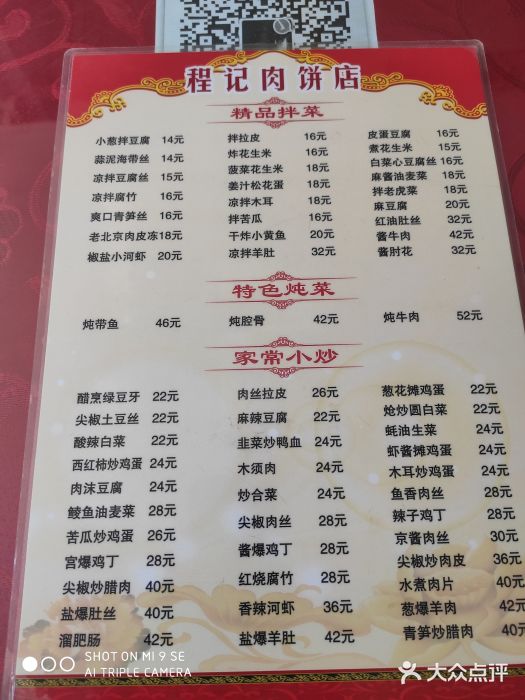 程记肉饼店
精品拌菜
小葱拌豆腐 14元 拌拉皮 16元 皮蛋豆腐 16元
蒜泥海带丝 14元 炸花生米 16元 煮花生米 15元
凉拌豆腐丝 15元 菠菜花生米 18元 白菜心豆腐丝 16元
凉拌腐竹 16元 姜汁松花蛋 18元 麻酱油麦菜 18元
爽口青笋丝 16元 凉拌木耳 18元 拌老虎菜 18元
老北京肉皮冻18元 拌苦瓜 16元 麻豆腐 20元
椒盐小河虾 20元 干炸小黄鱼 20元 红油肚丝 32元
凉拌羊肚 32元 酱牛肉 42元
酱肘花 32元
特色炖菜
炖带鱼 46元 炖腔骨 42元 炖牛肉 52元
家常小炒
醋烹绿豆芽 22元 肉丝拉皮 26元 葱花摊鸡蛋 22元
尖椒土豆丝 22元 麻辣豆腐 22元 炝炒圆白菜 22元
酸辣白菜 22元 韭菜炒鸭血 24元 蚝油生菜 24元
西红柿炒鸡蛋 24元 木须肉 24元 虾酱摊鸡蛋 24元
肉沫豆腐 24元 炒合菜 24元 木耳炒鸡蛋 24元
鲮鱼油麦菜 28元 尖椒肉丝 28元 鱼香肉丝 28元
苦瓜炒鸡蛋 26元 酱爆鸡丁 28元 辣子鸡丁 28元
宫爆鸡丁 28元 红烧腐竹 28元 京酱肉丝 30元
尖椒炒腊肉 40元 香辣河虾 36元 尖椒炒肉皮 36元
盐爆肚丝 40元 盐爆羊肚 42元 水煮肉片 40元
溜肥肠 42元 葱爆羊肉 42元
青笋炒腊肉 40元
SHOT ON MI 9 SE
AI TRIPLE CAMERA
大众点评